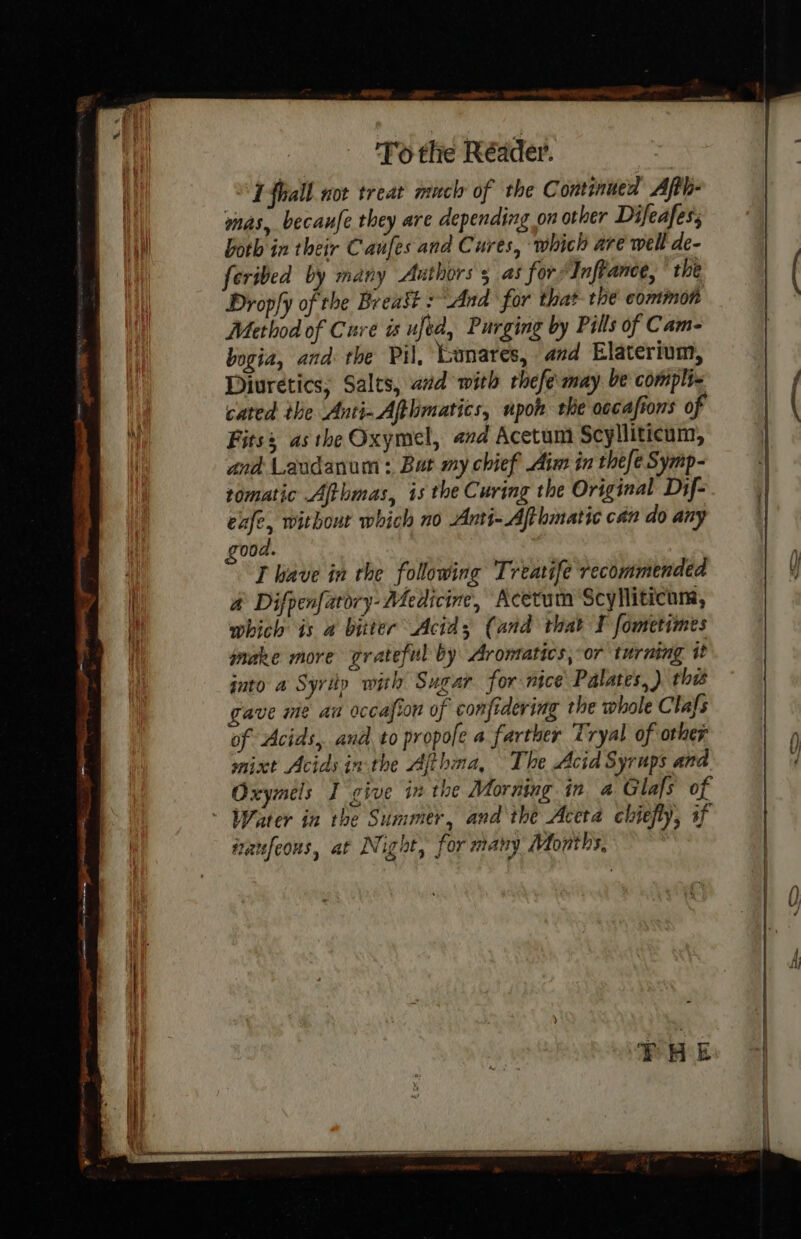 To the Reader.
I ſhall not treat much of the Continued Aſth-
mas, becauſe they are depending on other Diſeaſes;
both in their Cauſes and Cures, which are well de-
ſcribed by many Authors; as for Inſtance, the
Dropſy of the Breaſt: And for that the common
Method of Cure is uſed, Purging by Pills of Cam-
bogia, and the Pil. Lunares, and Elaterium,
Diuretics, Salts, and with theſe may be compli-
cated the Anti-Aſthmatics, upon the occaſions of
Fits; as the Oxymel, and Acetum Scylliticum,
and Laudanum: But my chief Aim in theſe Symp-
tomatic Aſthmas, is the Curing the Original Diſ-
eaſe, without which no Anti-Aſthmatic can do any
good.
I have in the following Treatiſe recommended
a Diſpenſatory-Medicine, Acetum Scylliticum,
which is a bitter Acid; (and that I ſometimes
make more grateful by Aromatics, or turning it
into a Syrup with Sugar for nice Palates,) this
gave me an occaſion of conſidering the whole Claſs
of Acids, and to propoſe a farther Tryal of other
mixt Acids in the Aſthma, The Acid Syrups and
Oxymels I give in the Morning in a Glaſs of
Water in the Summer, and the Aceta chiefly, if
nauſeous, at Night, for many Months.
THE